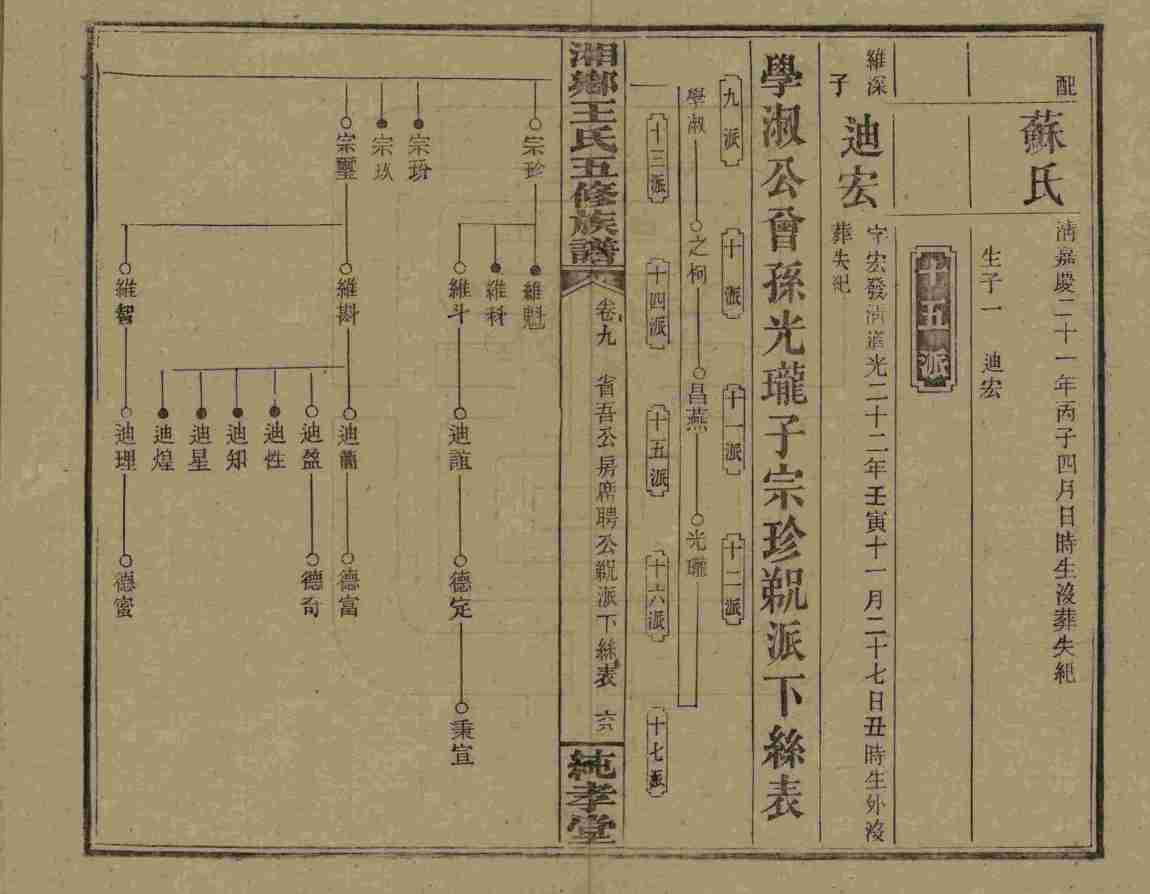 配
蘇氏
清嘉慶二十一年丙子四月日時生沒葬失紀
生子一 迪宏
十五派
維深
子
迪宏
字宏發清道光二十二年壬寅十一月二十七日丑時生外沒
葬失紀
學淑公曾孫光瓏子宗珍祝派下絲表
九派 十派 十一派 十二派
學淑 之柯 昌燕 光瓏
十三派 十四派 十五派 十六派 十七派
湘鄉王氏五修族譜
卷九 省吾公房席聘公祝派下絲表 六
純孝堂
宗珍
維魁
維科
維斗 迪誼 德定 秉宣
宗玖
宗璽
維斟
迪蘭 德富
迪盈 德奇
迪性
迪知
迪星
迪煌
維智 迪理 德蜜